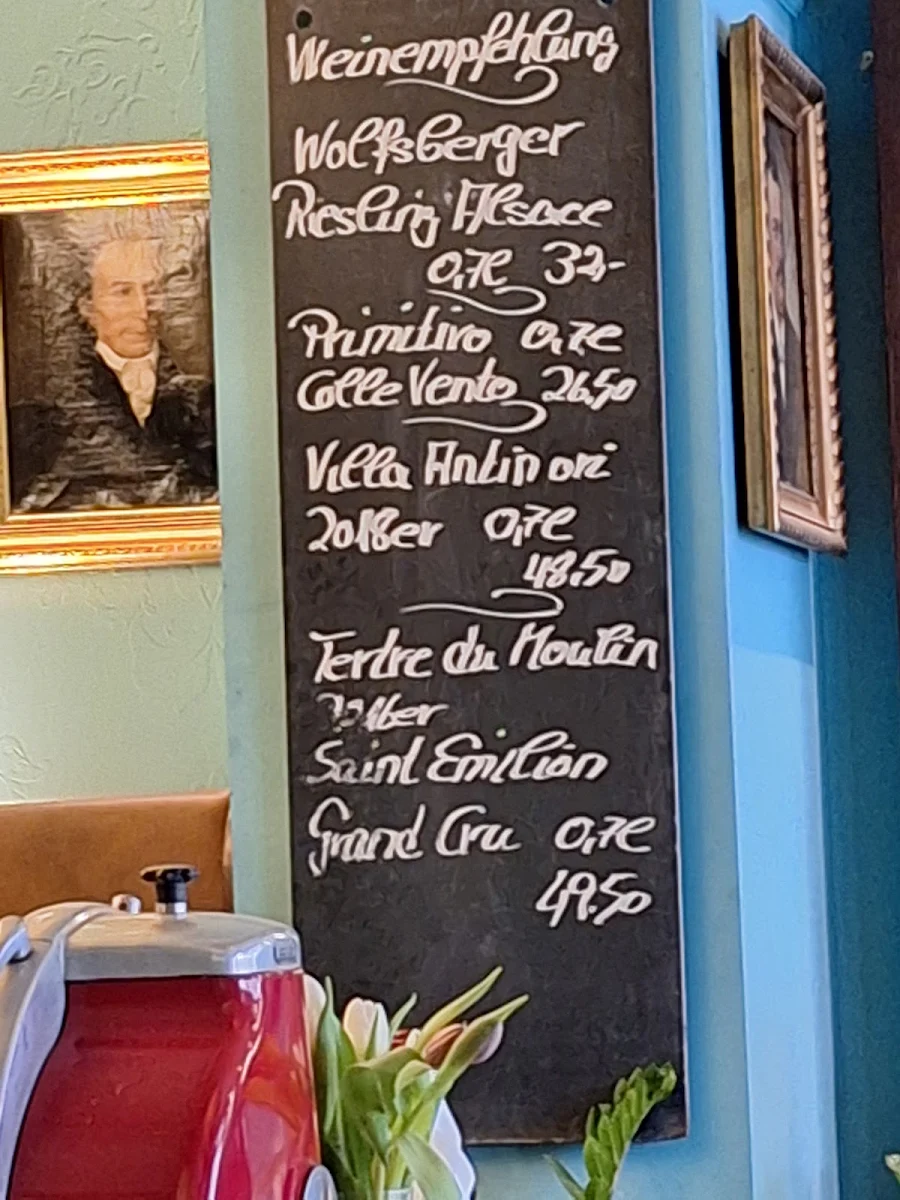 Weinempfehlung
Wolfsberger
Riesling Alsace
0,7l 32,-
Primitivo 0,7l
Colle Vento 26.50
Villa Antinori
2018er 0,7l
48.50
Tertre du Moulin
Saint Emilion
Grand Cru 0,7l
49.50